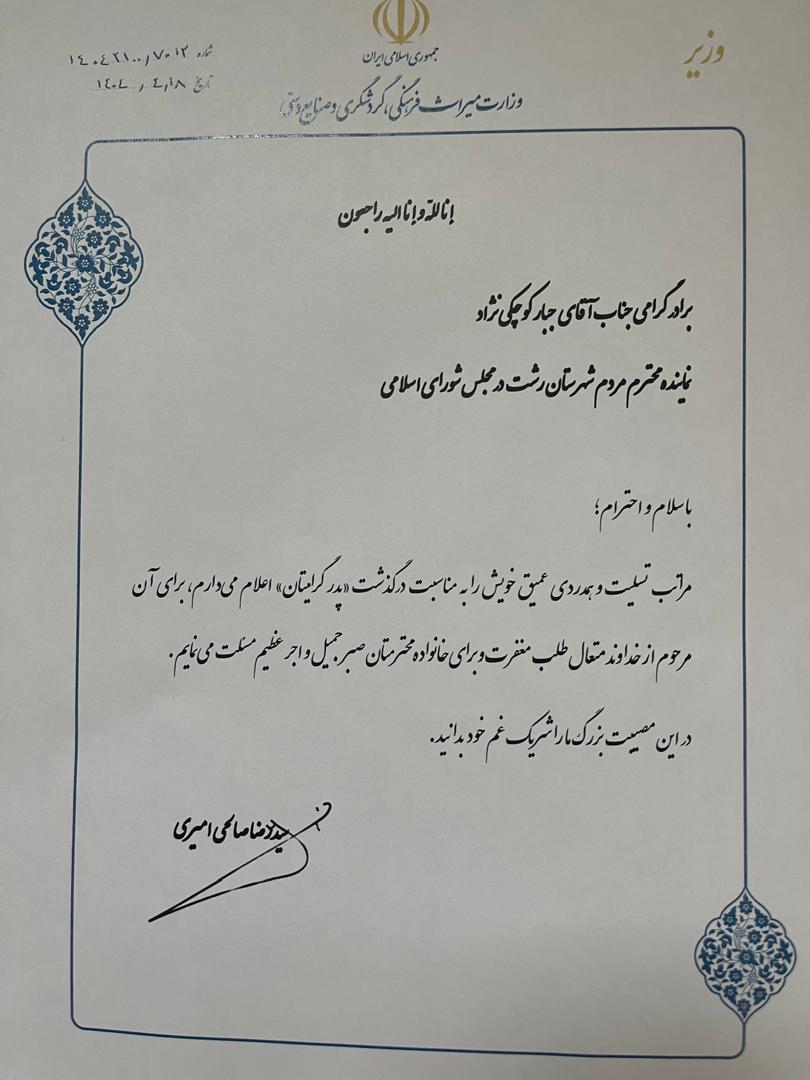 وزیر
جمهوری اسلامی ایران
وزارت میراث فرهنگی، گردشگری و صنایع دستی
شماره ۱۴۰۴۲۱۰۰/۷۰۱۲
تاریخ ۱۴۰۴/۴/۱۸
انا لله و انا الیه راجعون
برادر گرامی جناب آقای جبار کوچکی نژاد
نماینده محترم مردم شهرستان رشت در مجلس شورای اسلامی
با سلام و احترام؛
مراتب تسلیت و همدردی عمیق خویش را به مناسبت درگذشت «پدر گرامیتان» اعلام می‌دارم، برای آن
مرحوم از خداوند متعال طلب مغفرت و برای خانواده محترمتان صبر جمیل و اجر عظیم مسئلت می‌نمایم.
در این مصیبت بزرگ ما را شریک غم خود بدانید.
سیدرضا صالحی امیری